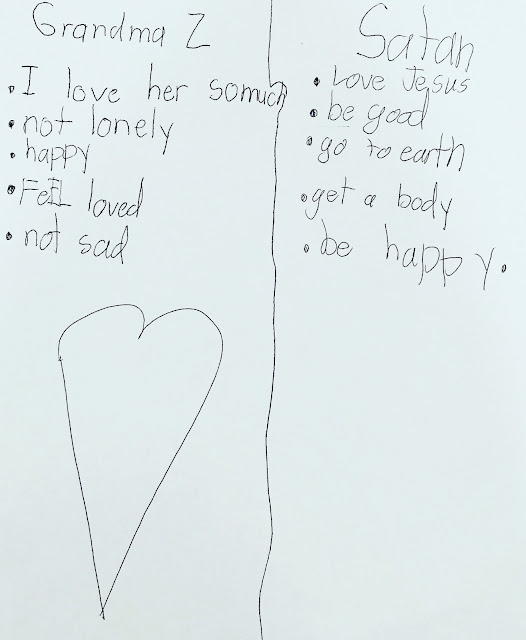 Grandma Z
• I love her somuch
• not lonely
• happy
• FeEL loved
• not sad
Satan
• Love Jesus
• be good
• go to earth
• get a body
• be happy.